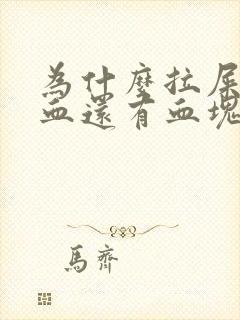 為什麼拉屎
血還有血塊
馬齊